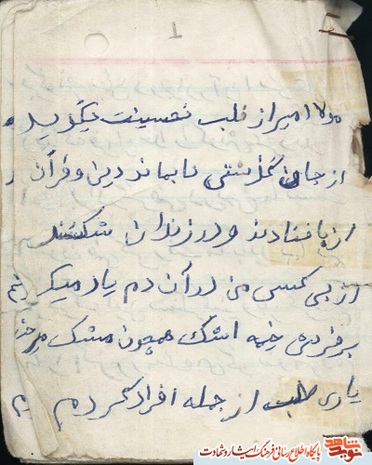 ۱
مولا امیر از قلب نصیبت میگوید
از جان گذشتی تا بماند دین و قرآن
از پا فتادند و در زندان شکستند
از بی کسی من در آن دم یاد میکر
بر فرش خیمه اشک همچون مشک
یاری طلب از جمله افراد کردم
نوید شاهد
پایگاه اطلاع رسانی فرهنگ ایثار و شهادت